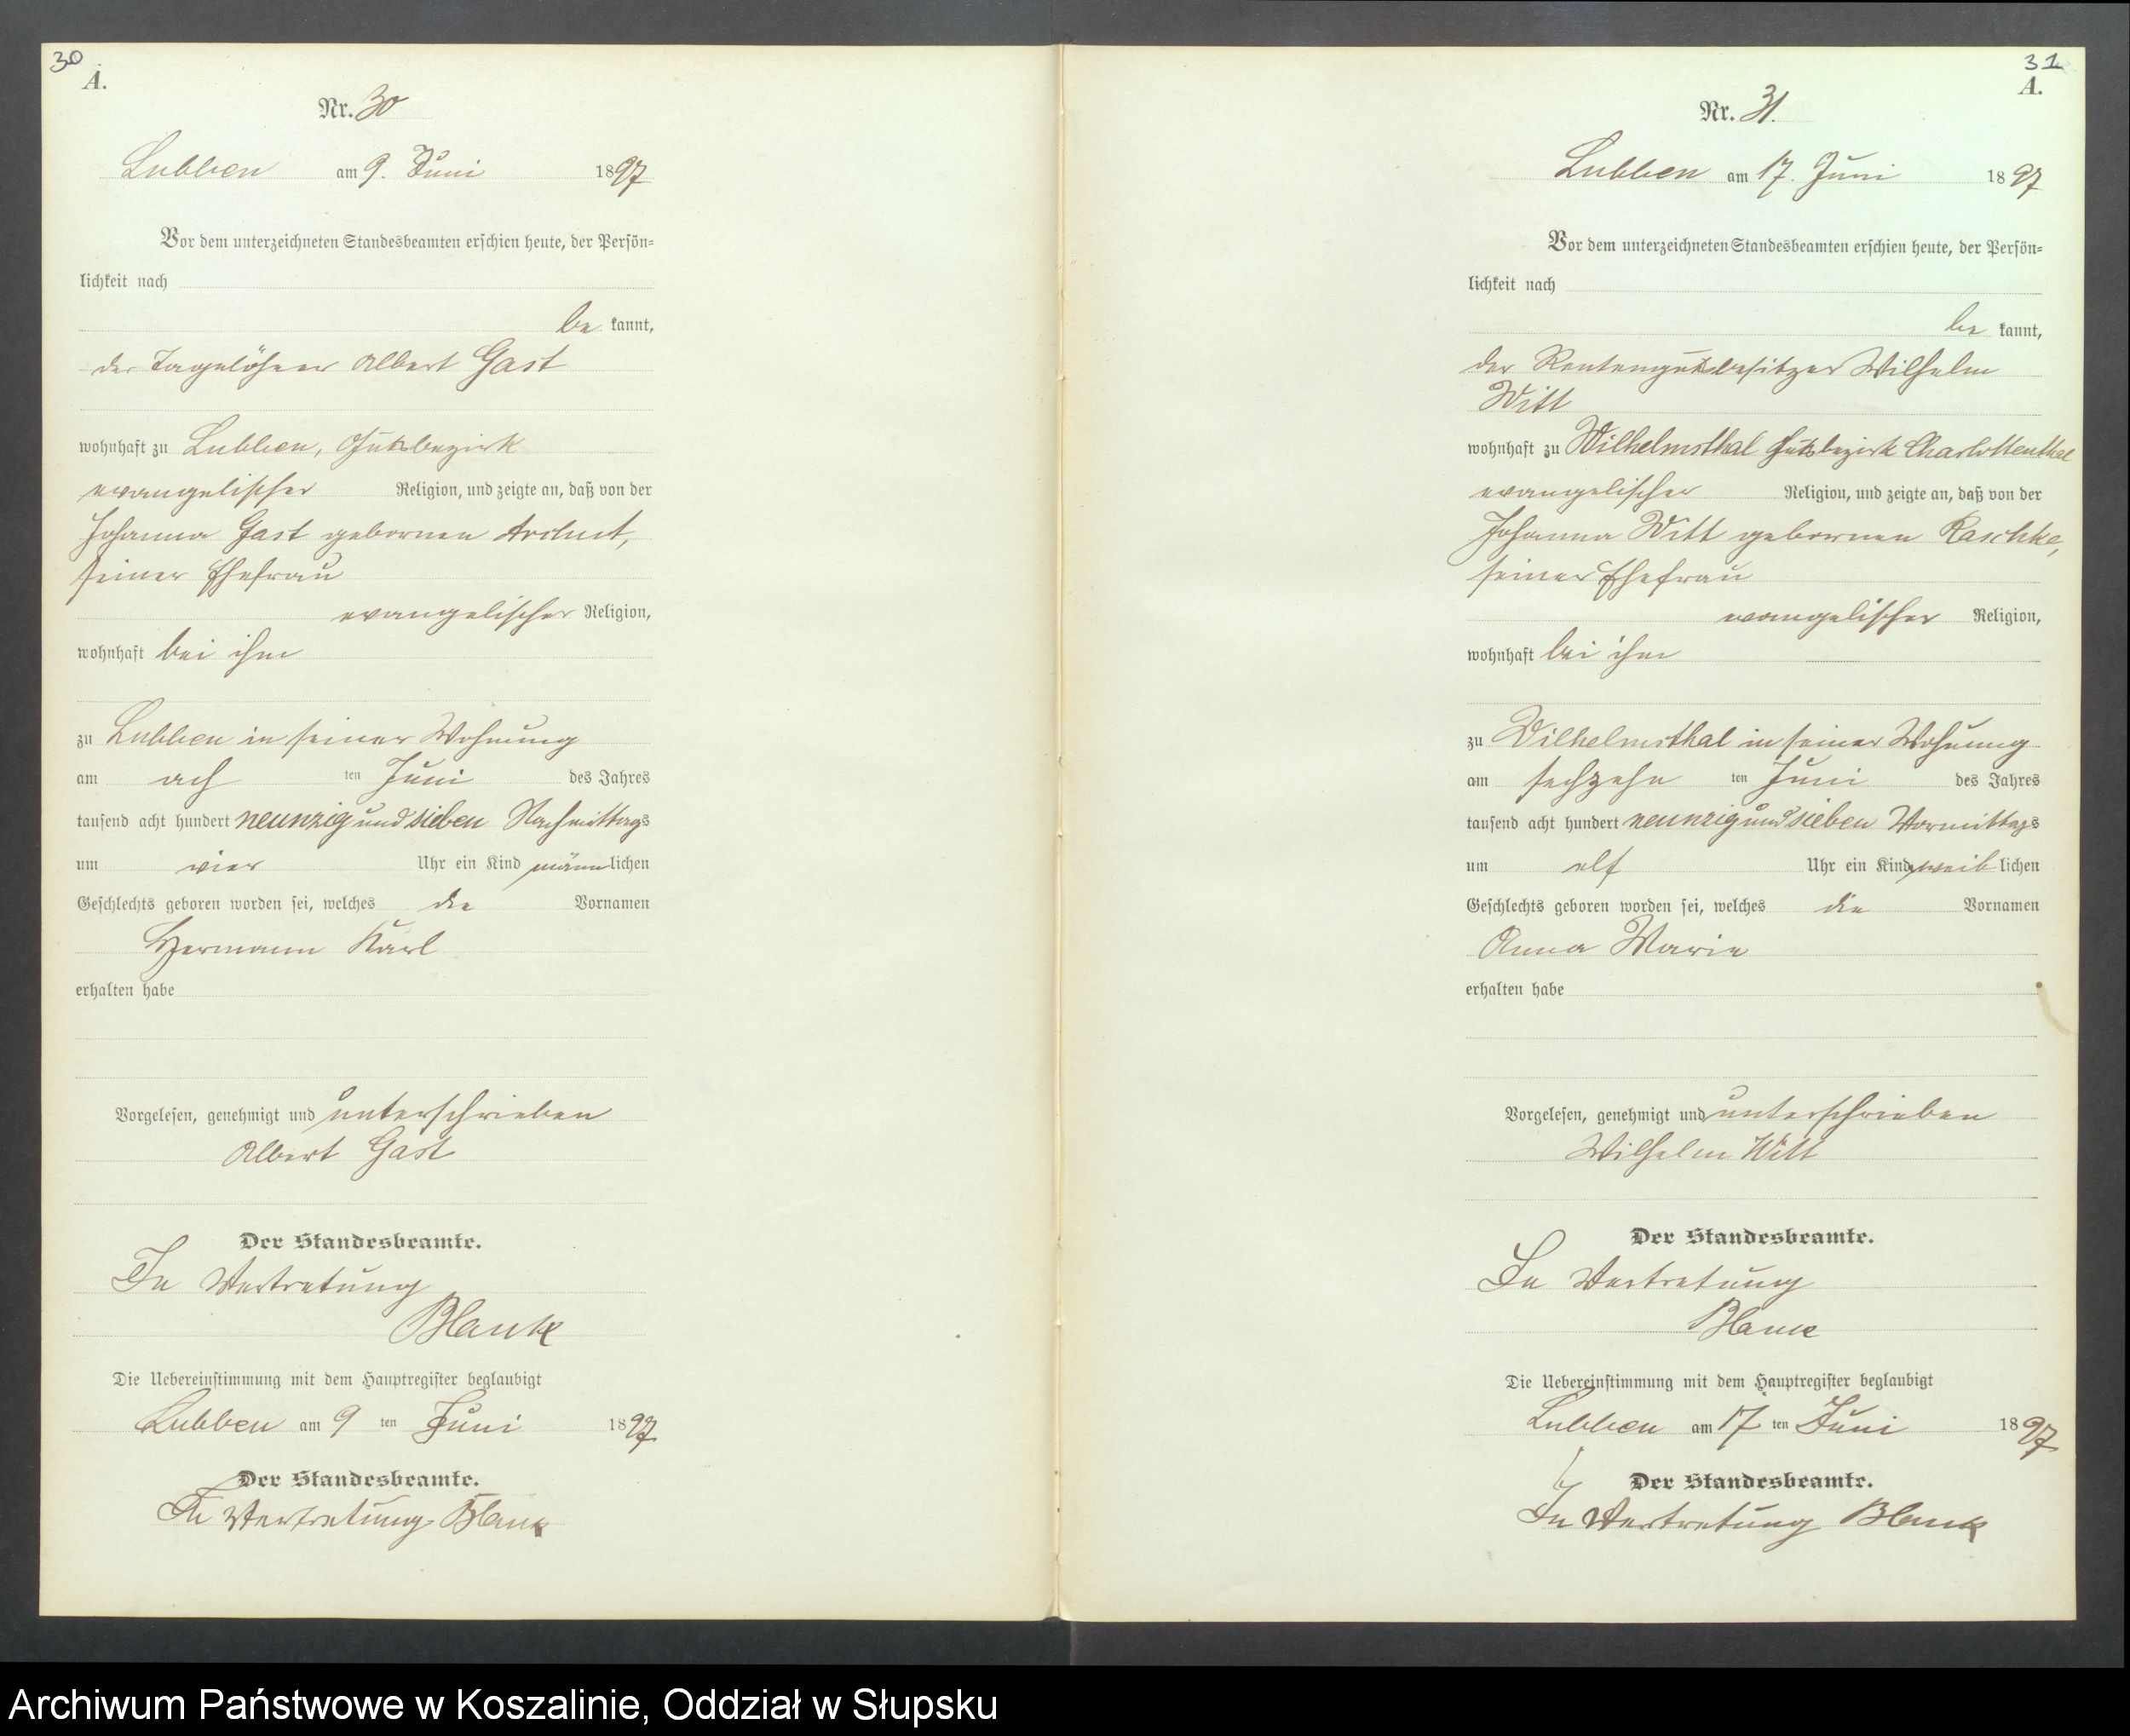 30
A.
Nr. 30
Lubben am 9. Juni 1897
Vor dem unterzeichneten Standesbeamten erschien heute, der Persön=
lichkeit nach
be kannt,
der Tagelöhner Albert Gast
wohnhaft zu Lubben, Gutsbezirk
evangelischer Religion, und zeigte an, daß von der
Johanna Gast gebornen
seiner Ehefrau
evangelischer Religion,
wohnhaft bei ihm
zu Lubben in seiner Wohnung
am ach ten Juni des Jahres
tausend acht hundert neunzig und sieben Nachmittags
um vier Uhr ein Kind männlichen
Geschlechts geboren worden sei, welches die Vornamen
Hermann Karl
erhalten habe
Vorgelesen, genehmigt und unterschrieben
Albert Gast
Der Standesbeamte.
In Vertretung
Blank
Die Uebereinstimmung mit dem Hauptregister beglaubigt
Lubben am 9 ten Juni 1897
Der Standesbeamte.
In Vertretung Blank
31
A.
Nr. 31.
Lubben am 17. Juni 1897
Vor dem unterzeichneten Standesbeamten erschien heute, der Persön=
lichkeit nach
be kannt,
der Rentengutsbesitzer Wilhelm
Witt
wohnhaft zu Wilhelmsthal Gutsbezirk Charlottenthal
evangelischer Religion, und zeigte an, daß von der
Johanna Witt gebornen Raschke,
seiner Ehefrau
evangelischer Religion,
wohnhaft bei ihm
zu Wilhelmsthal in seiner Wohnung
am sechzehn ten Juni des Jahres
tausend acht hundert neunzig und sieben Vormittags
um elf Uhr ein Kind weiblichen
Geschlechts geboren worden sei, welches die Vornamen
Anna Marie
erhalten habe
Vorgelesen, genehmigt und unterschrieben
Wilhelm Witt
Der Standesbeamte.
In Vertretung
Blank
Die Uebereinstimmung mit dem Hauptregister beglaubigt
Lubben am 17 ten Juni 1897
Der Standesbeamte.
In Vertretung Blank
Archiwum Państwowe w Koszalinie, Oddział w Słupsku